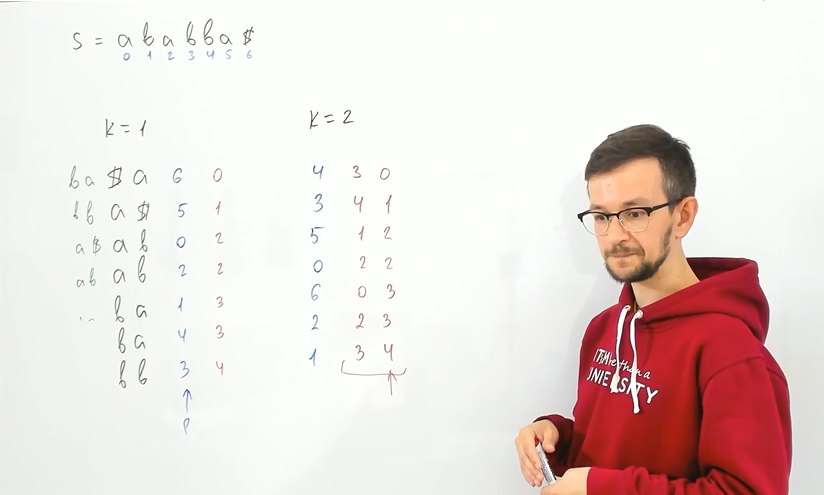 S = a b a b b a $
0 1 2 3 4 5 6
K = 1
K = 2
b a $ a 6 0
b b a $ 5 1
a $ a b 0 2
a b a b 2 2
.. b a 1 3
b a 4 3
b b 3 4
P
4 3 0
3 4 1
5 1 2
0 2 2
6 0 3
2 2 3
1 3 4
ITMore than a
UNIVERSITY